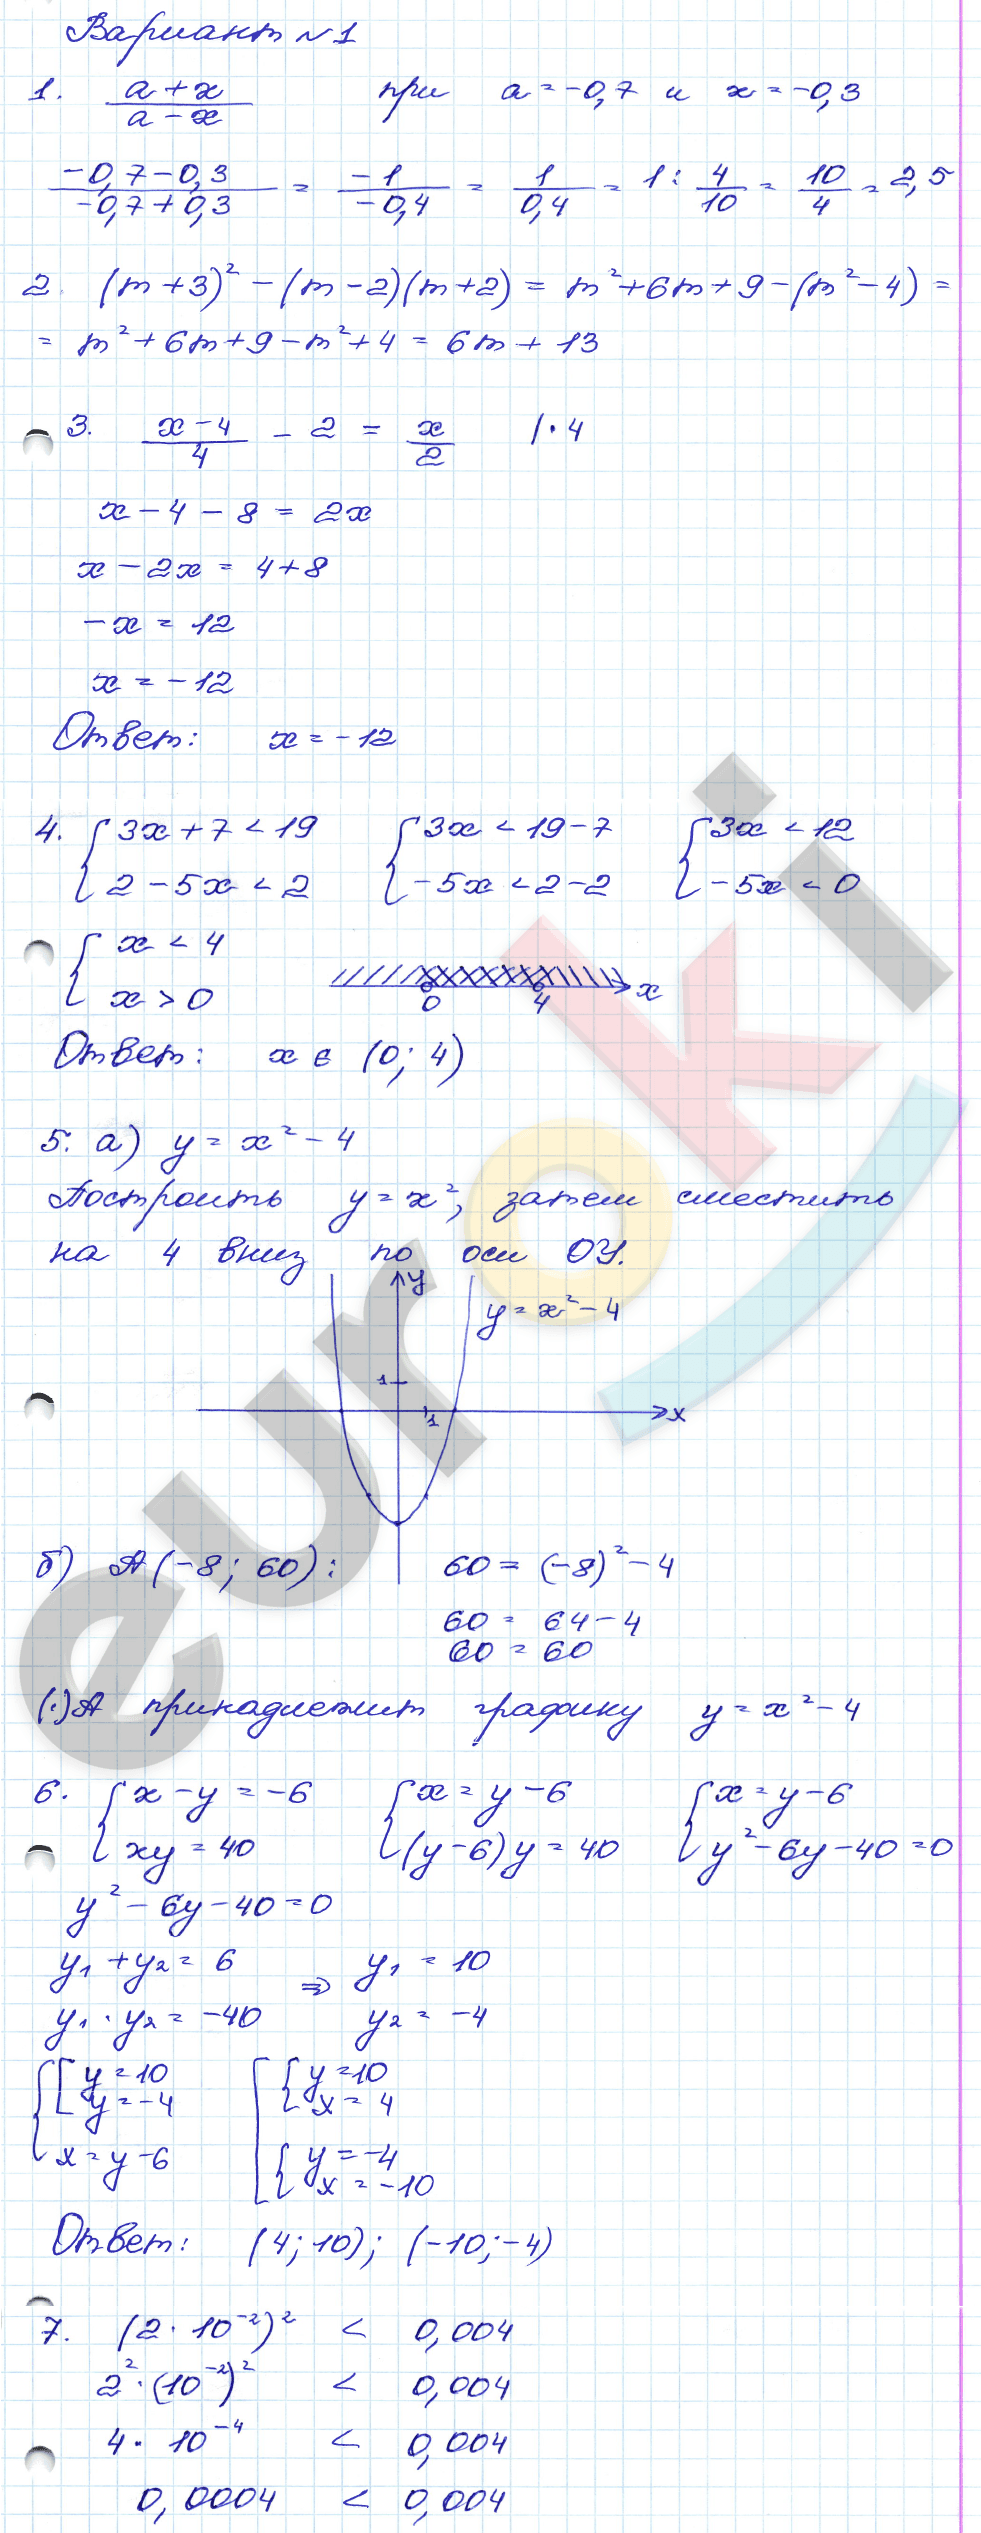 Вариант №1
1. (a+x)/(a-x) при a=-0,7 и x=-0,3
(-0,7-0,3)/(-0,7+0,3) = (-1)/(-0,4) = 1/0,4 = 1: 4/10 = 10/4 = 2,5
2. (m+3)² - (m-2)(m+2) = m²+6m+9-(m²-4) =
= m²+6m+9-m²+4 = 6m+13
3. (x-4)/4 - 2 = x/2 |·4
x-4-8 = 2x
x-2x = 4+8
-x = 12
x = -12
Ответ: x=-12
4. { 3x+7<19 { 3x<19-7 { 3x<12
2-5x<2 -5x<2-2 -5x<0
{ x<4
x>0 0 4 x
Ответ: x ∈ (0; 4)
5. а) y=x²-4
Построить y=x², затем сместить
на 4 вниз по оси ОУ.
y
y=x²-4
1
1 x
б) А(-8; 60): 60=(-8)²-4
60=64-4
60=60
(·)А принадлежит графику y=x²-4
6. { x-y=-6 { x=y-6 { x=y-6
xy=40 (y-6)y=40 y²-6y-40=0
y²-6y-40=0
y₁+y₂=6 ⇒ y₁=10
y₁·y₂=-40 y₂=-4
{ [ y=10 [ { y=10
y=-4 x=4
x=y-6 { y=-4
x=-10
Ответ: (4; 10); (-10; -4)
7. (2·10⁻²)² < 0,004
2²·(10⁻²)² < 0,004
4·10⁻⁴ < 0,004
0,0004 < 0,004
euroki